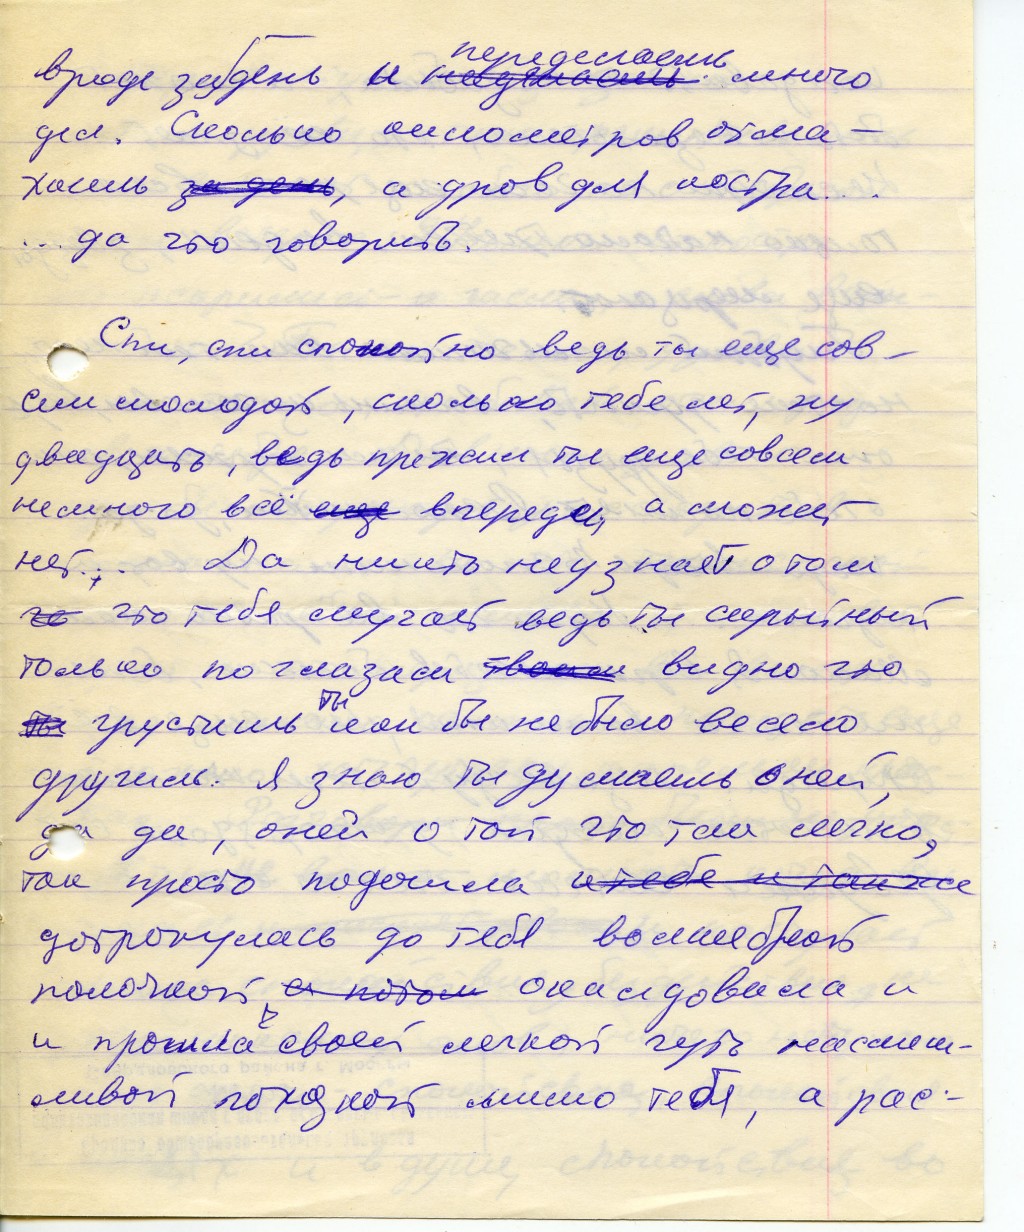 вроде за день и переделаешь много
дел. Сколько километров отма-
хаешь за день, а дров для костра...
... да что говорить.
Спи, спи спокойно ведь ты еще сов-
сем молодой, сколько тебе лет, ну
двадцать, ведь прожил ты еще совсем
немного всё еще впереди, а может
нет... Да никто неузнает о том
что тебя мучает ведь ты скрытный
только по глазам твоим видно что
ты грустишь ты как бы не было весело
другим. Я знаю ты думаешь о ней,
да да, о ней о той что так легко,
так просто подошла и тебе и также
дотронулась до тебя волшебной
палочкой, а потом околдовала и
и прошла с своей легкой чуть насмеш-
ливой походкой мимо тебя, а рас-